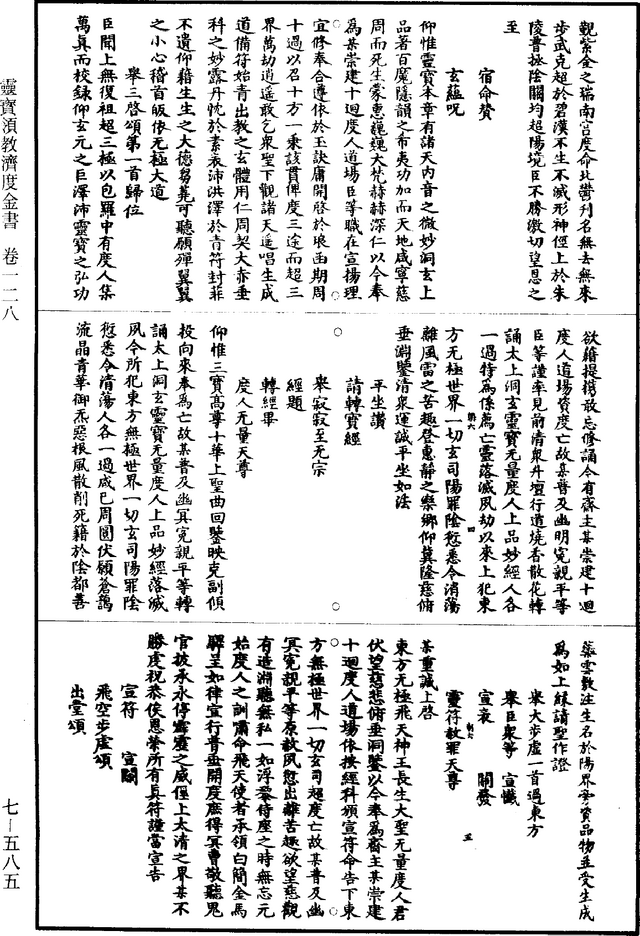 觀紫金之瑞南宮度命北酆刋名無去無來
步武克超於碧漢不生不滅形神徑上於朱
陵普拯陰關均超陽境臣不勝激切望恩之
至
宿命贊
玄蘊呪
仰惟靈寶本章有諸天内音之微妙洞玄上
品著百魔隱韻之希夷功加而天地咸寧慈
周而死生蒙惠巍巍大梵赫赫深仁以今奉
為某崇建十迴度人道場臣等職在宣揚理
宜修奉合遵依於玉訣庸開啓於琅函期周
十過以召十方一乘該貫俾度三途而超三
界萬劫逍遥敢乞衆聖下觀諸天遥唱生成
道備符始青出教之玄體用仁周契大赤垂
科之妙露丹忱於素表沛洪澤於青符封菲
不遺仰藉生生之大德芻蕘可聽願殫翼翼
之小心稽首皈依无極大道
舉三啓頌第一首歸位
臣聞上無復祖超三極以包羅中有度人集
萬真而校録仰玄元之巨澤沛靈寶之弘功
欲藉提攜敢忘修誦今有齋主某崇建十迴
度人道場資度亡故某普及幽明寃親平等
臣等謹率見前清衆升壇行道燒香散花轉
誦太上洞玄靈寶无量度人上品妙經人各
一過特為係薦亡靈落滅夙劫以來上犯東
方无極世界一切玄司陽罪陰愆悉令消蕩
離風雷之苦趣登惠靜之樂鄉仰冀隆慈俯
垂淵鑒清衆運誠平坐如法
平坐讃
請轉寶經
舉寂寂至无宗
經題
轉經畢
度人无量天尊
仰惟三寶高尊十華上聖曲回鑒映克副傾
投向來奉為亡故某普及幽冥寃親平等轉
誦太上洞玄靈寶无量度人上品妙經落滅
夙今所犯東方無極世界一切玄司陽罪陰
愆悉令清蕩人各一過咸已周圓伏願蒼靄
流晶青華御炁惡根風散削死籍於陰都善
蘂雲敷注生名於陽界爰資品物並受生成
為如上緣請聖作證
舉大步虚一首過東方
舉臣衆等 宣懺
宣表 關發
靈符赦罪天尊
某重誠上啓
東方无極飛天神王長生大聖无量度人君
伏望慈悲俯垂洞鑒以今奉為齋主某崇建
十迴度人道場依按經科頒宣符命告下東
方無極世界一切玄司超度亡故某普及幽
冥寃親平等原赦夙愆出離苦趣欲望慈觀
有造淵聽無私一如浮黎侍座之時無忘元
始度人之訓肅命飛天使者承領白簡金馬
驛呈如律宣行普垂開度庶得冥曹敬聽鬼
官披承永停霹靂之威徑上太清之界某不
勝虔祝恭俟恩榮所有真符謹當宣告
宣符 宣關
飛空步虚頌
出堂頌
第六
四
五
靈寶領教濟度金書 卷一二八
七—五八五